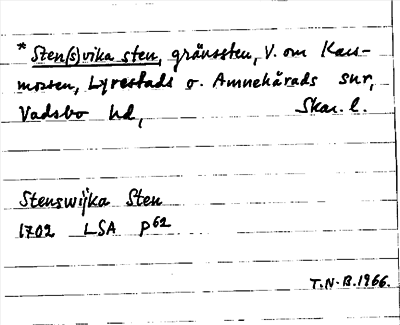 * Sten(s)vika sten, gränssten, V. om Kan-
mossen, Lyrestads o. Amnehärads snr,
Vadsbo hd, Skar. l.
Stenswijka Sten
1702 LSA P62
T.N-B.1966.